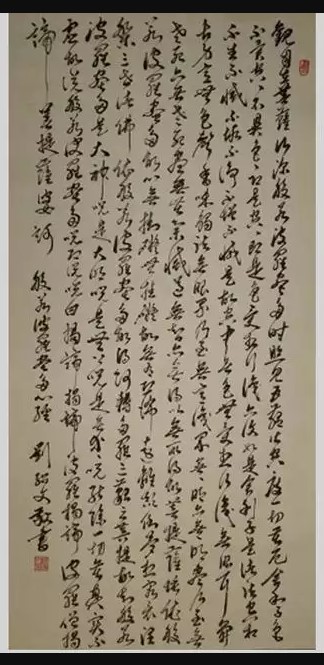 觀自在菩薩行深般若波羅蜜多時照見五蘊皆空度一切苦厄舍利子色
不異空空不異色色即是空空即是色受想行識亦復如是舍利子是諸法空相
不生不滅不垢不淨不增不減是故空中無色無受想行識無眼耳鼻
舌身意無色聲香味觸法無眼界乃至無意識界無無明亦無無明盡乃至無
老死亦無老死盡無苦集滅道無智亦無得以無所得故菩提薩埵依般
若波羅蜜多故心無罣礙無罣礙故無有恐怖遠離顛倒夢想究竟涅
槃三世諸佛依般若波羅蜜多故得阿耨多羅三藐三菩提故知般若
波羅蜜多是大神咒是大明咒是無上咒是無等等咒能除一切苦真實不
虛故說般若波羅蜜多咒即說咒曰揭諦揭諦波羅揭諦波羅僧揭
諦菩提薩婆訶 般若波羅蜜多心經 劉文敬書